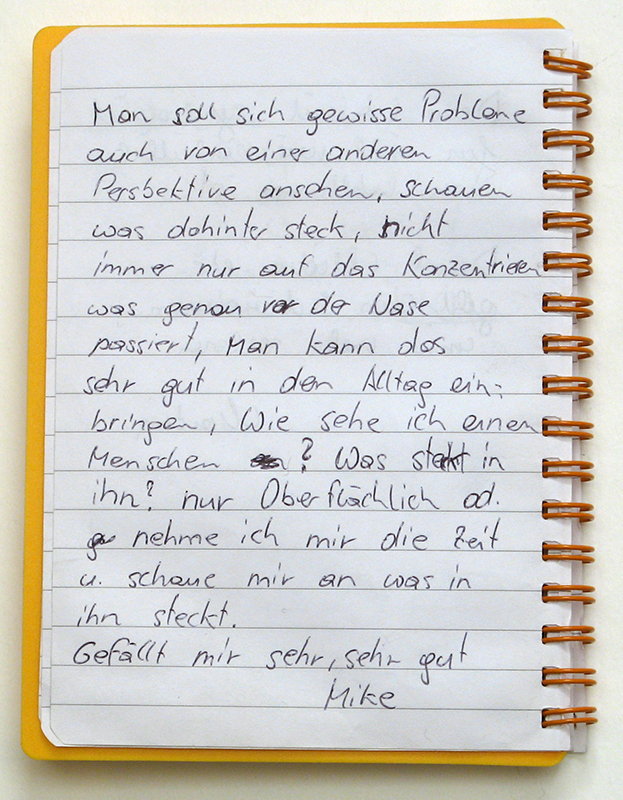 Man soll sich gewisse Probleme
auch von einer anderen
Persbektive ansehen, schauen
was dahinter steck, nicht
immer nur auf das Konzentrieren
was genau vor der Nase
passiert, Man kann das
sehr gut in den Alltag ein-
bringen, Wie sehe ich einen
Menschen ? Was steckt in
ihn? nur Oberflächlich od.
nehme ich mir die Zeit
u. schaue mir an was in
ihn steckt.
Gefällt mir sehr, sehr gut
Mike